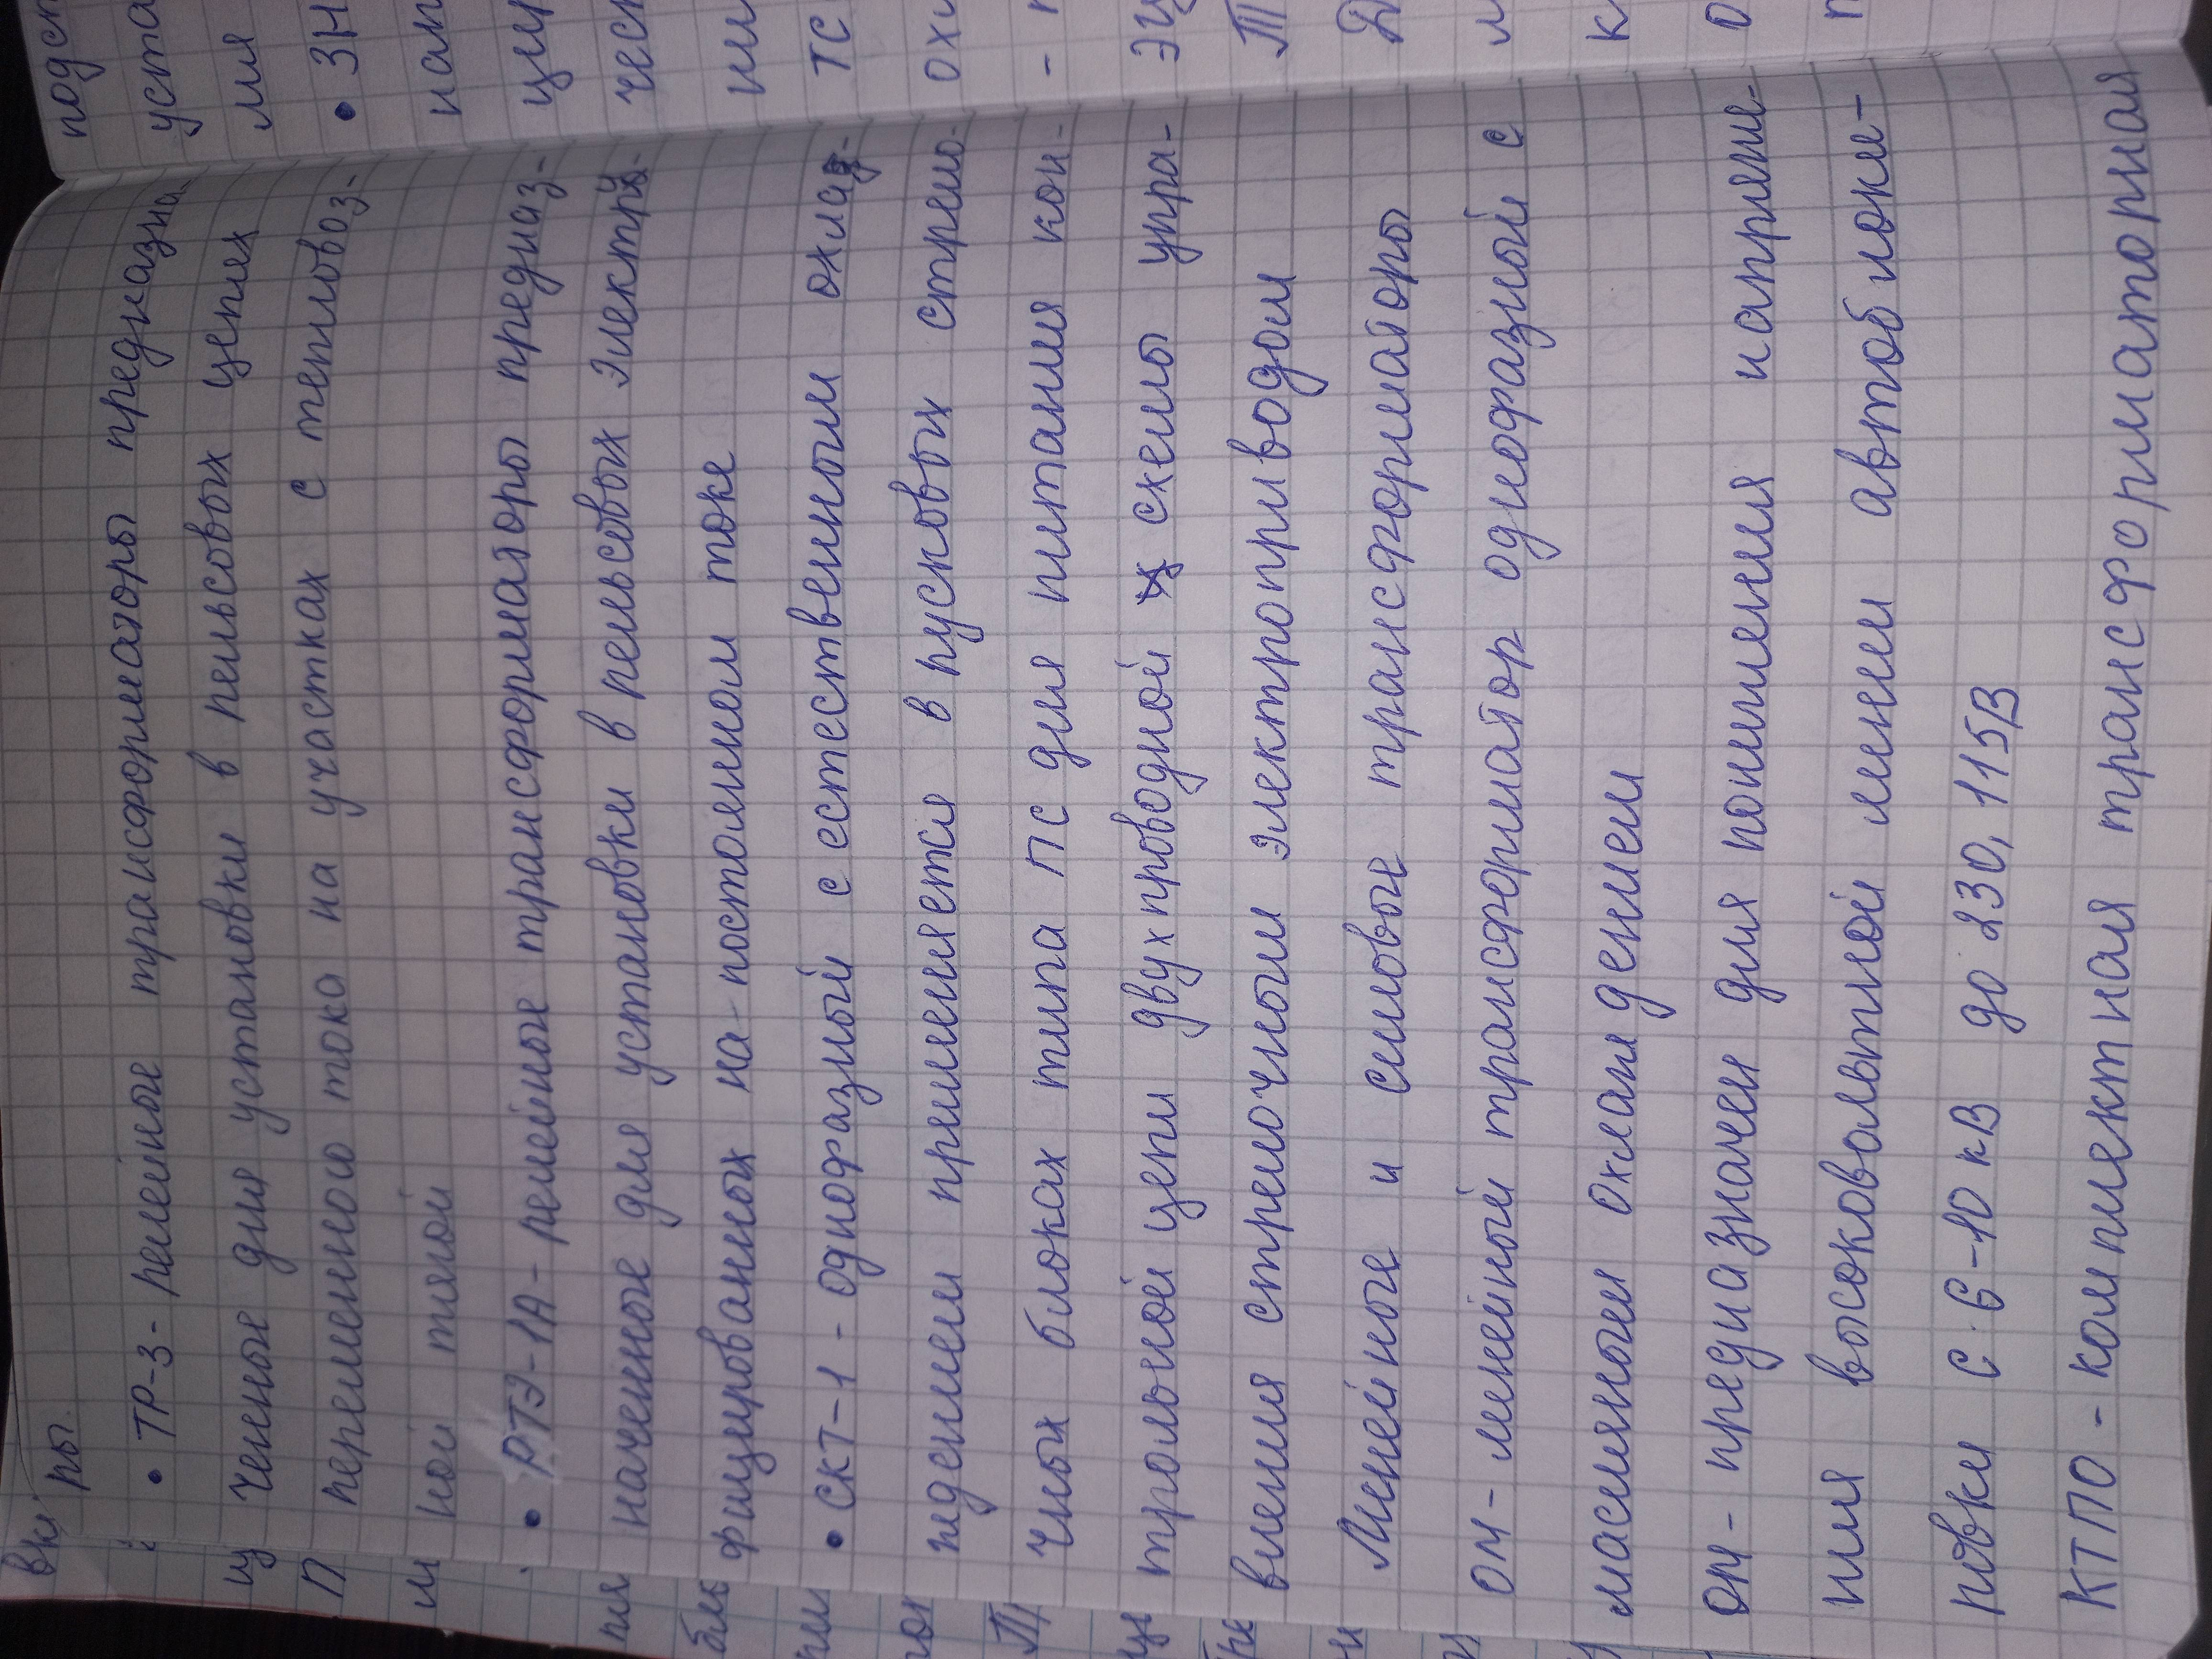 ры.
• ТР-3 - релейные трансформаторы предназна-
ченные для установки в рельсовых цепях
переменного тока на участках с тепловоз-
ной тягой
• РТЭ-1А - релейные трансформаторы предназ-
наченные для установки в рельсовых электро-
фицированных на-постоянном токе
• СКТ-1 - однофазный с естественным охлаж-
дением применяется в пусковых стрело-
чных блоках типа ПС для питания кон-
трольной цепи двухпроводной схемы упра-
вления стрелочным электроприводом
Линейные и силовые трансформаторы
ОМ - линейный трансформатор однофазный с
масляным охлаждением
ОМ - предназначен для понижения напряже-
ния высоковольтной линии автоблоки-
ровки с 6-10 кВ до 230, 115В
КТПО - комплектная трансформаторная